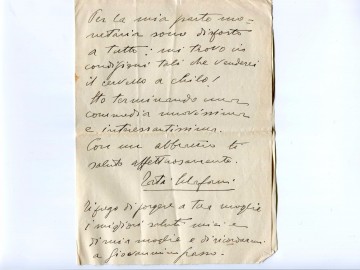 Per la mia parte mo-
netaria sono disposto
a tutto: mi trovo in
condizioni tali che venderei
il cervello a chilo!
Sto terminando una
commedia nuovissima
e interessantissima.
Con un abbraccio ti
saluto affettuosamente.
Ti prego di porgere a tua moglie
i migliori saluti miei e
di mia moglie e di ricordarmi
a Giovannin